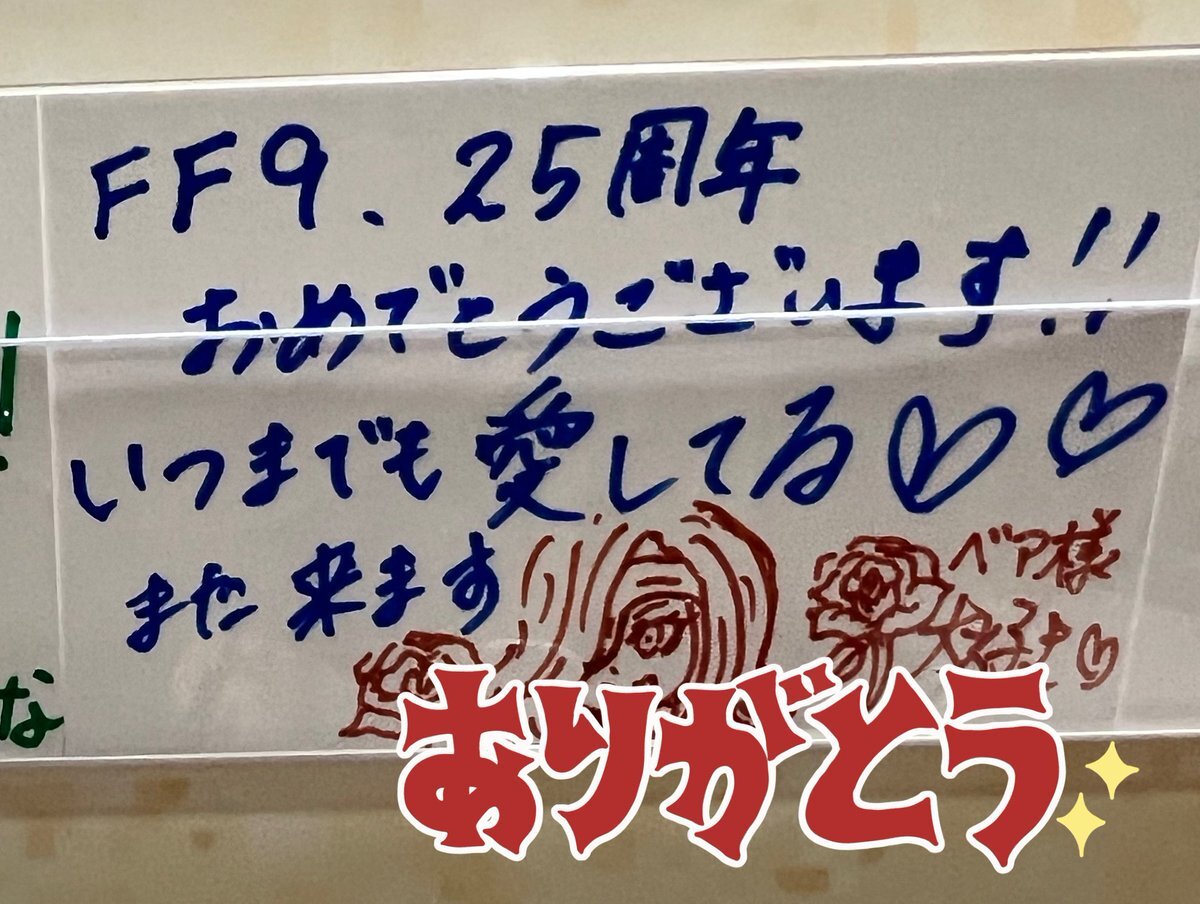 FF9. 25周年
おめでとうございます!!
いつまでも愛してる♡♡
また来ます
ベア様
大好き♡
ありがとう
な